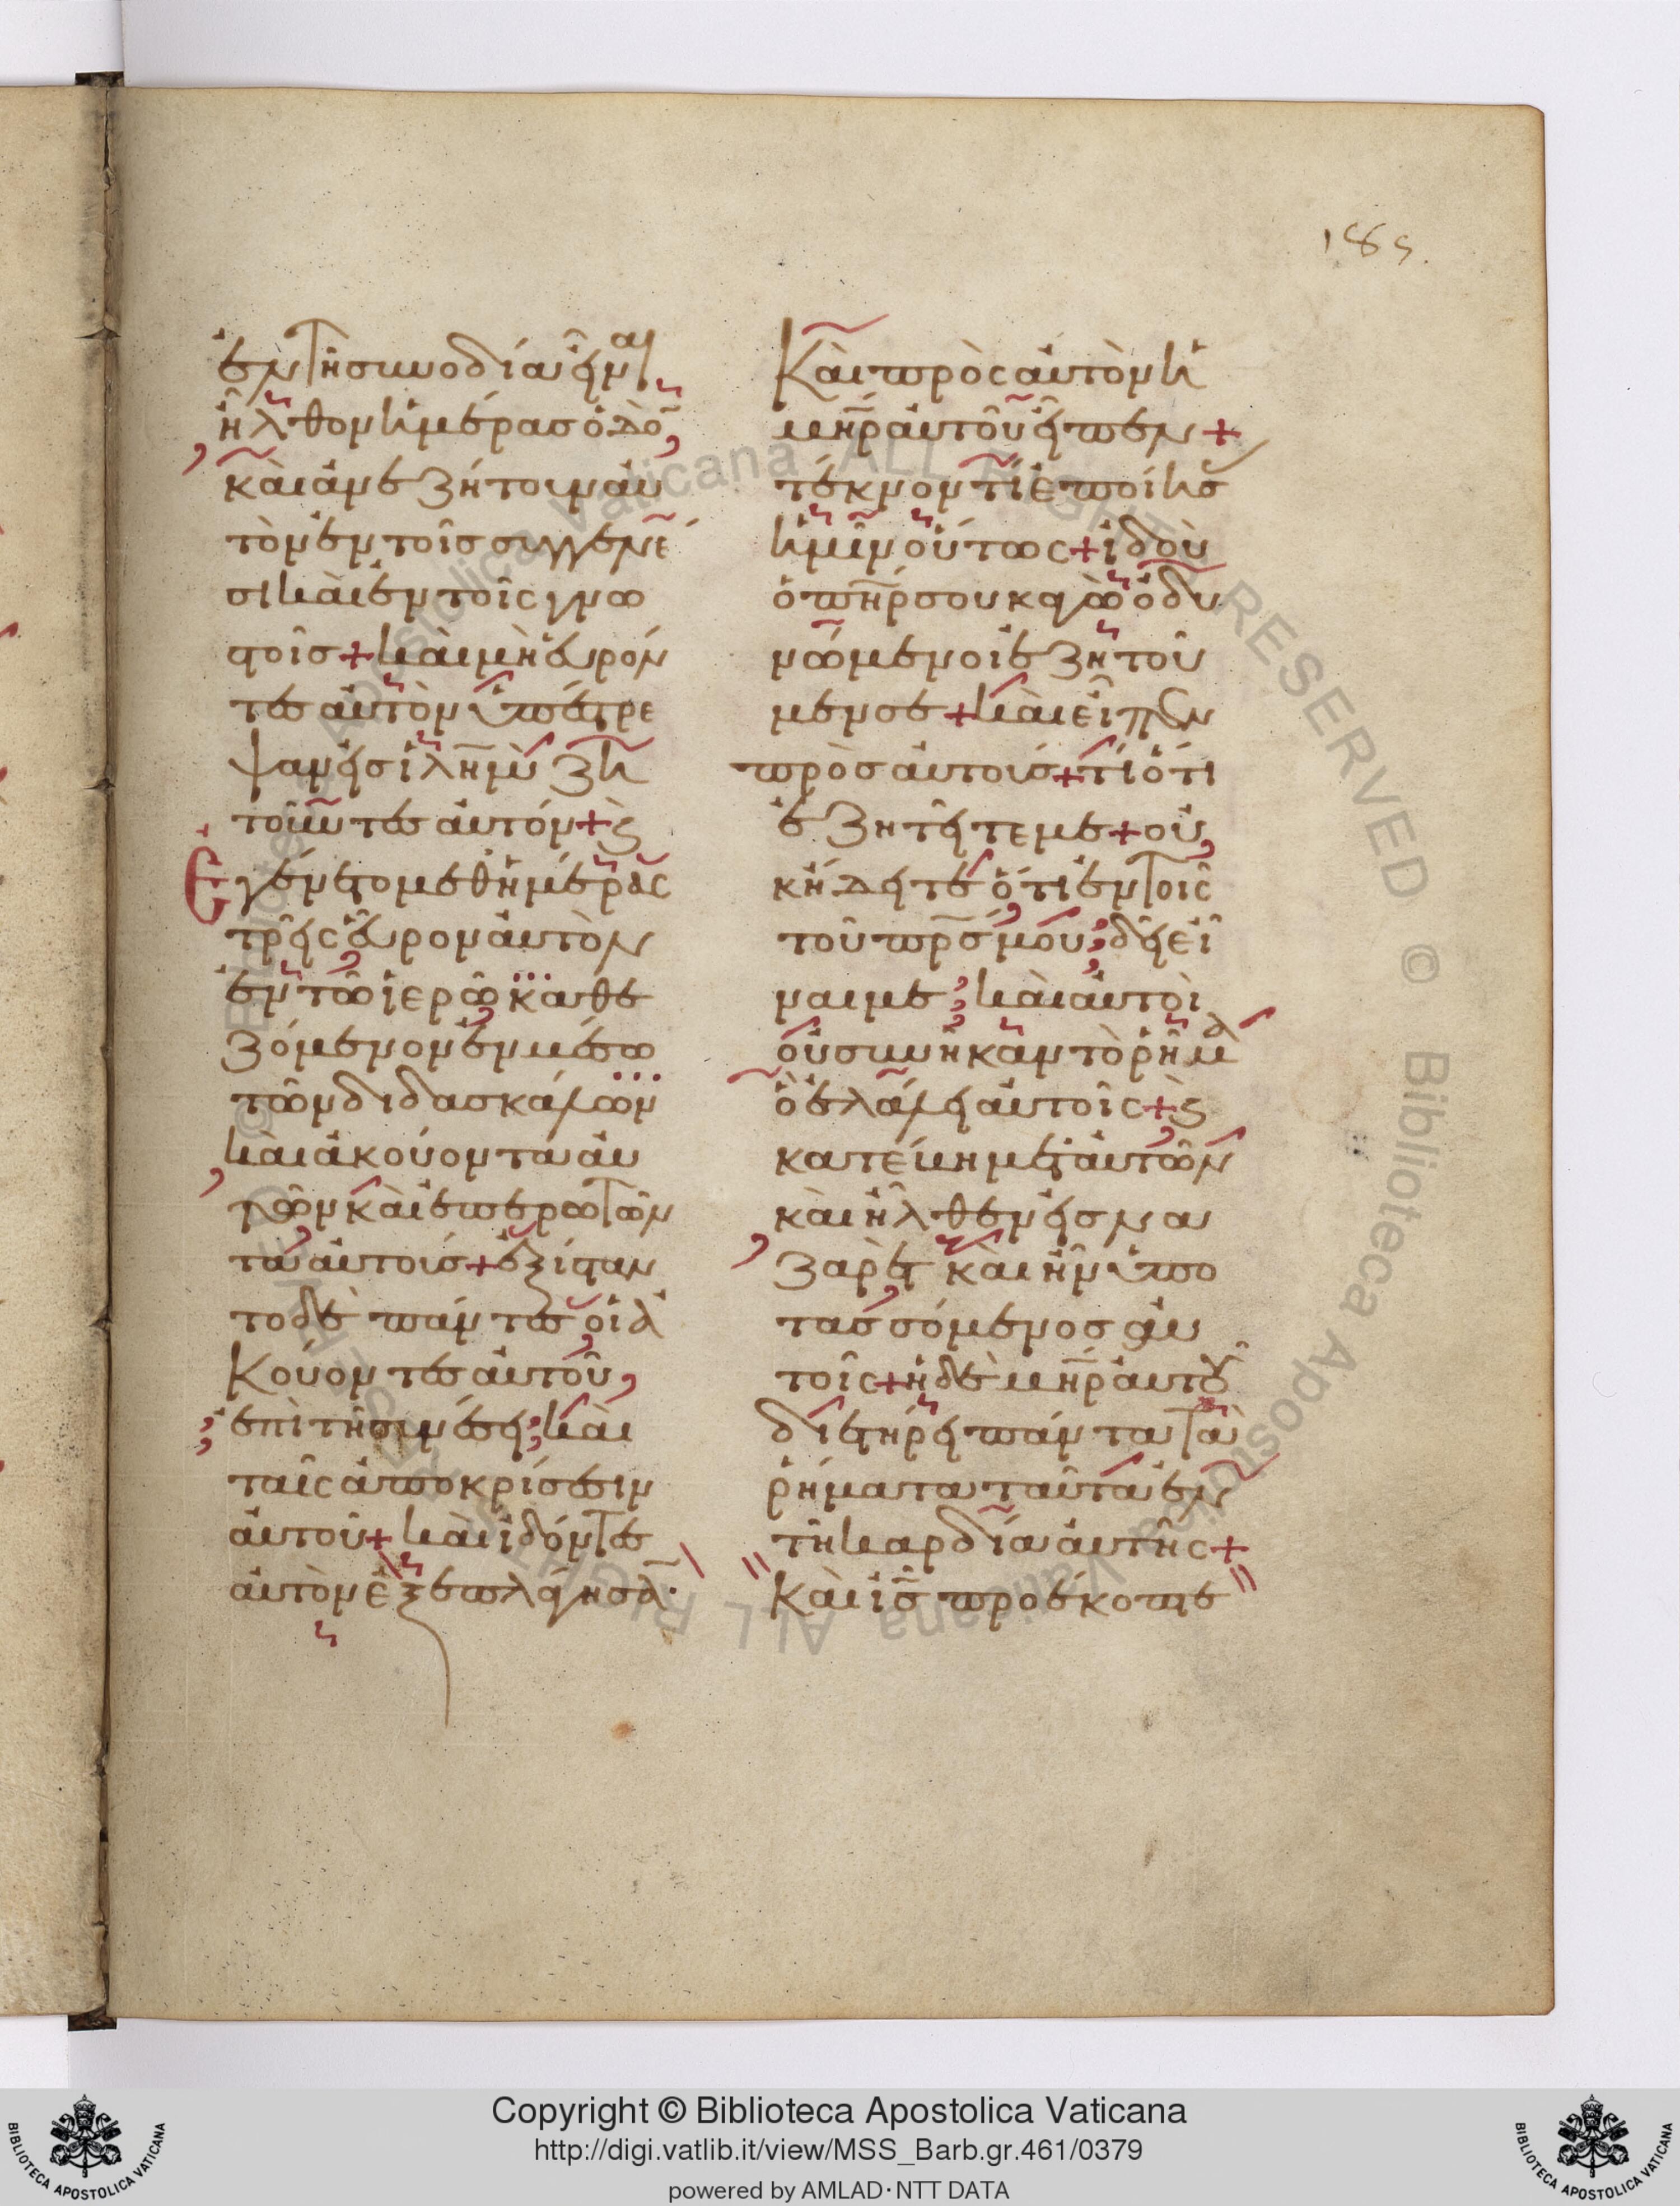 185.
ἐν τῆ συνοδία εἶναι
ἦλθον ἡμέρας ὁδὸ̄
καὶ ἀνεζήτουν αὐ
τὸν ἐν τοῖς συγγενέ
σι καὶ ἐν τοῖς γνω
στοῖς + καὶ μὴ εὑρόν
τες αὐτὸν ὑπέστρε
ψαν εἰς ἰλῆμ ζη
τοῦντες αὐτόν + ϗ
Ἐγένετο μεθ ἡμέρας
τρεῖς εὗρον αὐτὸν
ἐν τῶ ἱερῶ καθε
ζόμενον ἐν μέσω
τῶν διδασκάλων
καὶ ἀκούοντα αὐ
τῶν καὶ ἐπερωτῶν
τα αὐτούς + ἐξίσταν
το δὲ πάντες οἱ ἀ
κούοντες αὐτοῦ
ἐπὶ τῆ συνέσει καὶ
ταῖς ἀποκρίσεσιν
αὐτοῦ + καὶ ἰδόντες
αὐτὸν ἐξεπλάγησᾱ·
Καὶ πρὸς αὐτὸν ἡ
μη̄ρ αὐτοῦ εἶπεν +
τέκνον τί ἐποίησ
ἡμῖν οὕτως + ἰδοὺ
ὁ πη̄ρ σου κἀγὼ ὀδυ
νώμενοι ἐζητοῦ
μέν σε + καὶ εἶπεν
πρὸς αὐτούς + τί ὅτι
ἐζητεῖτε με + οὐ
κ ἤδειτε ὅτι ἐν τοῖς
τοῦ πρ̄ς μου δεῖ εἶ
ναι με καὶ αὐτοὶ
οὐ συνῆκαν τὸ ῥῆμα
ὃ ἐλάλησεν αὐτοῖς + ϗ
κατέβη μετ αὐτῶν
καὶ ἦλθεν εἰς να
ζαρὲτ καὶ ἦν ὑπο
τασσόμενος αὐ
τοῖς + ἡ δὲ μη̄ρ αὐτοῦ
διετήρει πάντα τὰ
ῥήματα ταῦτα ἐν
τῆ καρδία αὐτῆς +
Καὶ ἰ̄ς προέκοπτε
Copyright © Biblioteca Apostolica Vaticana
http://digi.vatlib.it/view/MSS_Barb.gr.461/0379
powered by AMLAD·NTT DATA
BIBLIOTECA APOSTOLICA VATICANA
BIBLIOTECA APOSTOLICA VATICANA